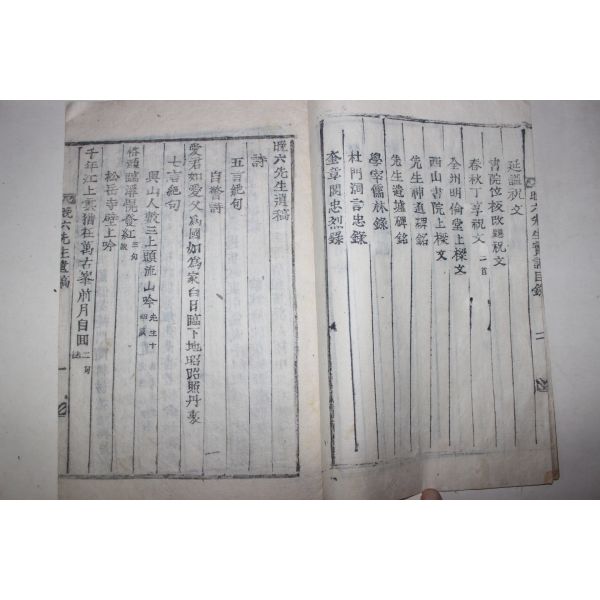 晚六先生實記目錄
二
延諡祝文
書院位板改題祝文
春秋丁享祝文 二首
全州明倫堂上樑文
西山書院上樑文
先生神道碑銘
先生遺墟碑銘
學宰儒林錄
杜門洞言忠錄
奎章閣忠烈錄
晚六先生遺稿
詩
五言絶句
自警詩
愛君如愛父爲國如爲家白日臨下地昭昭照丹衷
七言絶句
與山人數三上頭流山吟 先生十四歲
三句缺
松岳寺壁上吟
千年江上雲猶在萬古峯前月自圓 二句
晚六先生遺稿
一